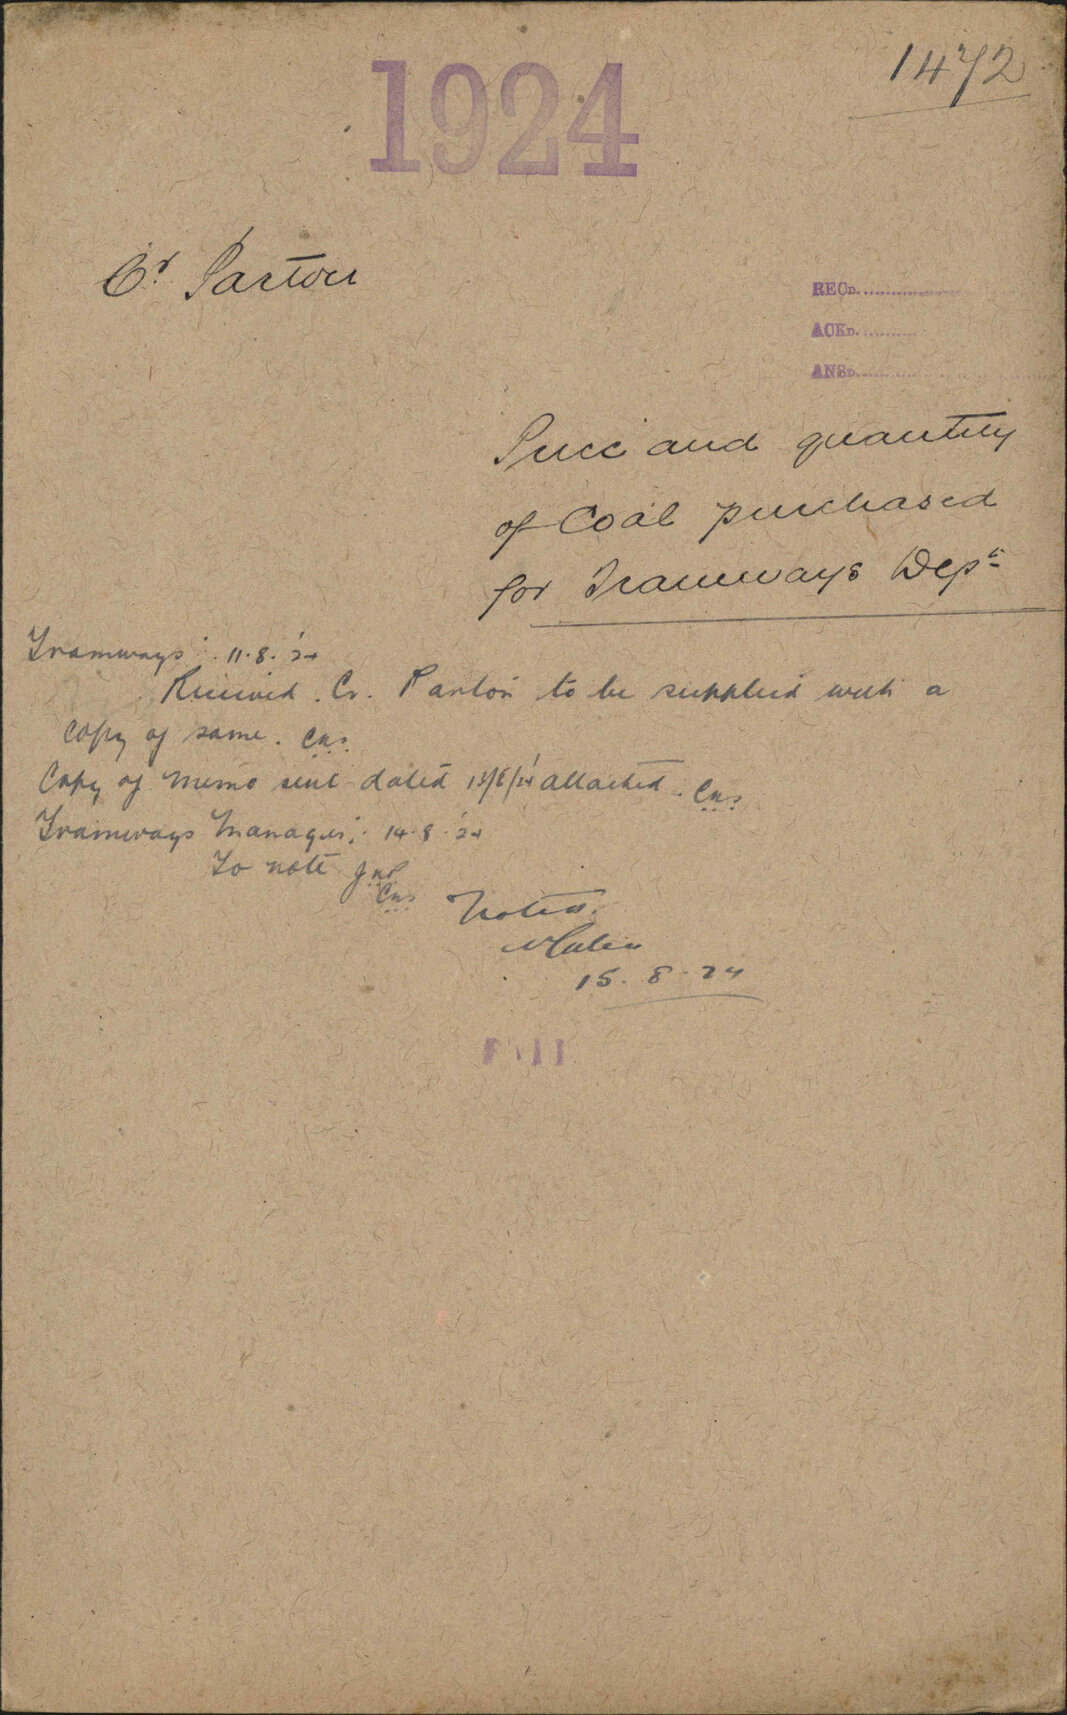 1472
1924
Cr Parton
RECD.
ACKD.
ANSD.
Price and quantity
of Coal purchased
for Tramways Dept
Tramways: 11.8.'24
Received. Cr. Parton to be supplied with a
copy of same.
Copy of memo sent dated 13/8/24 attached.
Tramways Manager: 14.8.'24
To note
Noted.
15.8.24